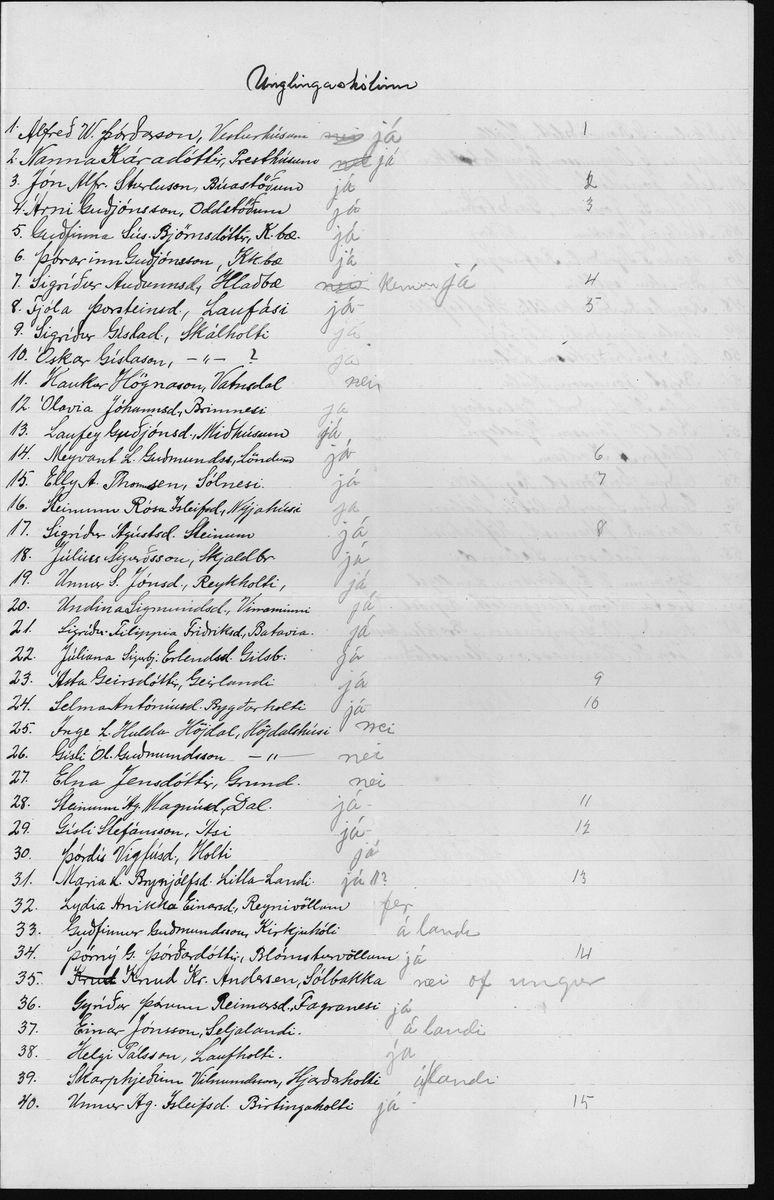 Unglingaskólinn
1. Alfreð W. Þórðarson, Vesturhúsum nei já 1
2. Nanna Káradóttir, Presthúsum nei já
3. Jón Alfr. Sturluson, Búastöðum já 2
4. Árni Guðjónsson, Oddstöðum já 3
5. Guðfinna Sús. Björnsdóttir, K.bæ. já
6. Þórarinn Guðjónsson, Kk.bæ já
7. Sigríður Auðunnsd, Hlaðbæ nei kemur já 4
8. Fjóla Þorsteinsd, Laufási já 5
9. Sigríður Gíslad, Skálholti já
10. Óskar Gíslason, — „ — ? já
11. Haukur Högnason, Vatnsdal nei
12. Ólavia Jóhannsd, Brimnesi já
13. Laufey Guðjónsd, Miðhúsum já
14. Meyvant L. Guðmundss, Löndum já 6
15. Elly A. Thomsen, Sólnesi. já 7
16. Steinunn Rósa Ísleifsd, Nýjahúsi já
17. Sigríður Ágústsd. Steinum já 8
18. Júlíus Sigurðsson, Skjaldbr já
19. Unnur S. Jónsd, Reykholti, já
20. Undína Sigmundsd, Vinaminni já
21. Sigríður Filippia Friðriksd, Batavia. já
22. Júlíana Sigurbj. Erlendsd. Gilsb. já
23. Ásta Geirsdóttir, Geirlandi já 9
24. Selma Antóníusd. Byggðarholti já 10
25. Inge L. Hulda Höjdal, Höjdalshúsi nei
26. Gísli Ól. Guðmundsson — „ — nei
27. Elna Jensdóttir, Grund. nei
28. Steinunn Ág. Magnúsd, Dal. já 11
29. Gísli Stefánsson, Ási já 12
30. Þórdís Vigfúsd, Holti já
31. María L. Brynjólfsd. Litla-Landi. já 11? 13
32. Lydia Anikka Einarsd, Reynivöllum fer
33. Guðfinnur Guðmundsson, Kirkjuhóli á landi
34. Þórný G. Þórðardóttir, Blómsturvöllum já 14
35. Knud Knud Kr. Andersen, Sólbakka nei of ungur
36. Gyríður Þórunn Reimarsd, Fagranesi já
37. Einar Jónsson, Seljalandi. á landi
38. Helgi Pálsson, Laufholti. já
39. Skarphjeðinn Vilmundsson, Hjarðaholti á landi
40. Unnur Ág. Ísleifsd. Birtingaholti já 15